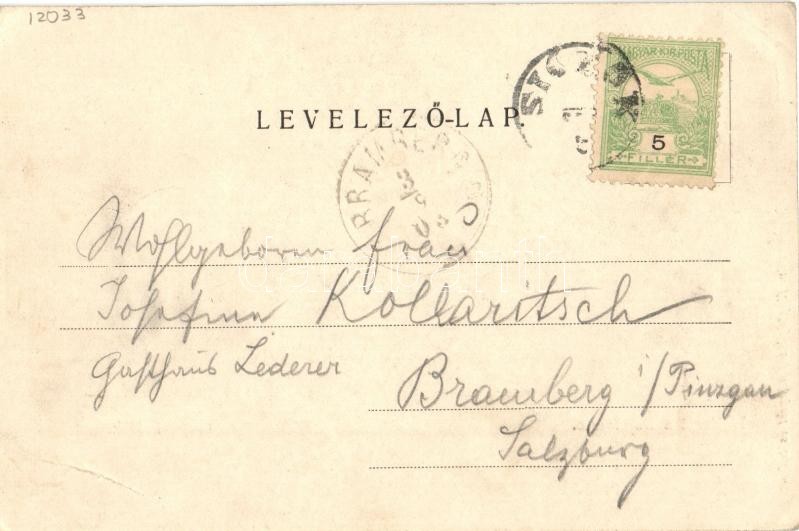 12033
MAGYAR KIR. POSTA
5
FILLÉR
LEVELEZŐ-LAP.
BRAMBERG
Wohlgeboren Frau
Josefine Kollaritsch
Gasthaus Lederer
Bramberg i/Pinzgau
Salzburg